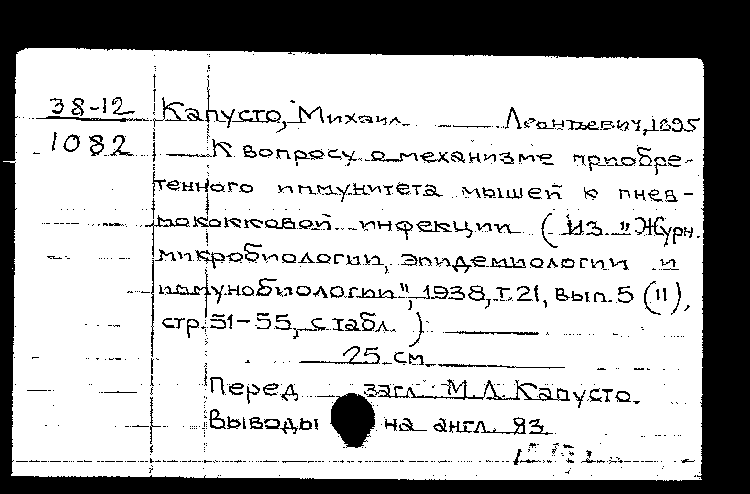 38-12 Капусто, Михаил Леонтьевич, 1895
1082 К вопросу о механизме приобре-
тенного иммунитета мышей к пнев-
мококковой инфекции (Из "Журн.
микробиологии, эпидемиологии и
иммунобиологии", 1938, т. 21, вып. 5 (11),
стр. 51-55, с табл.)
25 см
Перед загл. М.Л. Капусто.
Выводы на англ. яз.